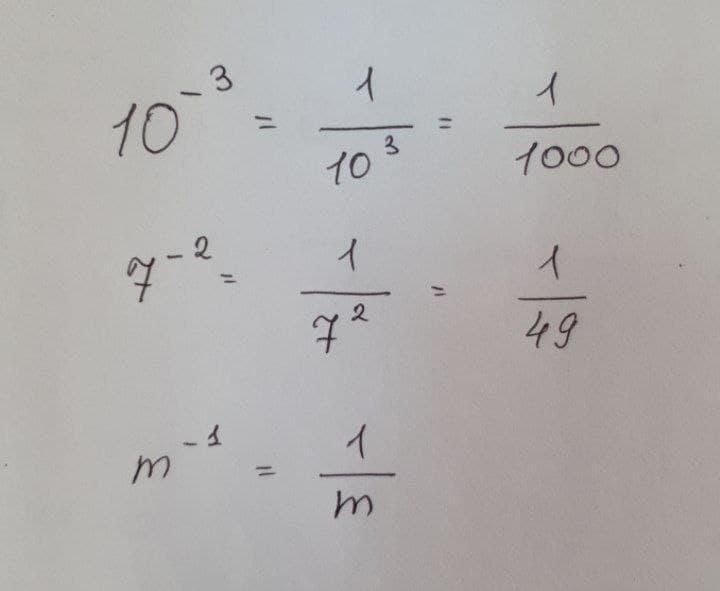 10⁻³ = 1/10³ = 1/1000
7⁻² = 1/7² = 1/49
m⁻¹ = 1/m